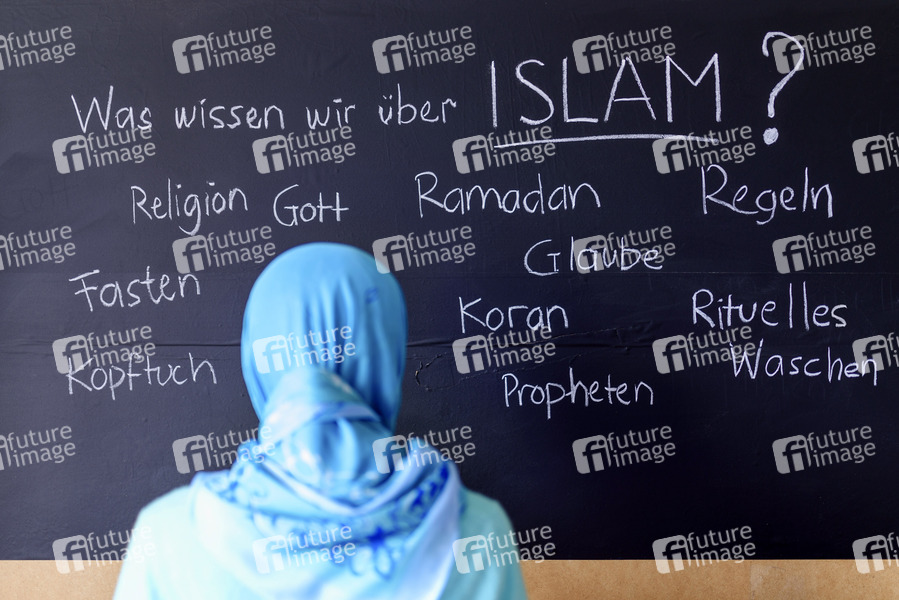 Was wissen wir über ISLAM?
Religion Gott Ramadan Regeln
Glaube
Fasten Koran Rituelles
Waschen
Kopftuch Propheten
future image